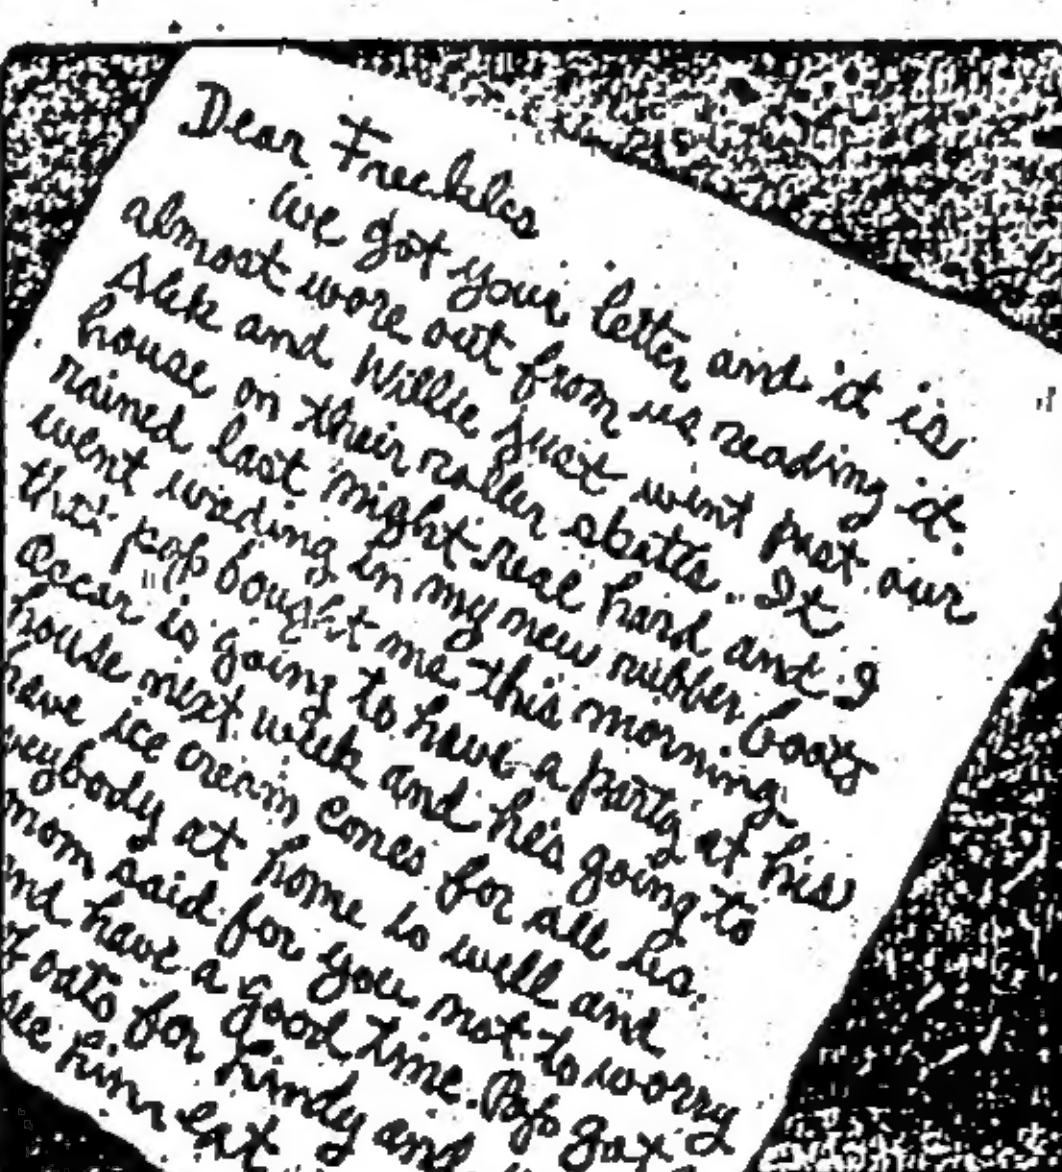 Dear Freckles
we got your letter and it is
almost wore out from us reading it.
Alek and Willie just went past our
house on their roller skates. It
rained last night real hard and I
went wading in my new rubber boots
that pop bought me this morning.
Oscar is going to have a party at his
house next week and he's going to
have ice cream cones for all us.
everybody at home is well and
mom said for you not to worry
and have a good time. Pop got
oats for hindy and
see him eat